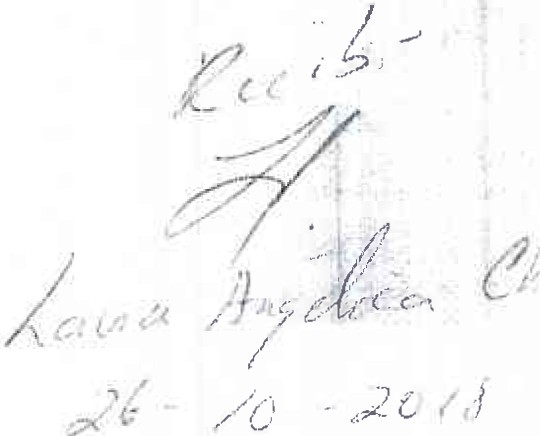 Recibí
Laura Angelica Ch
26-10-2018